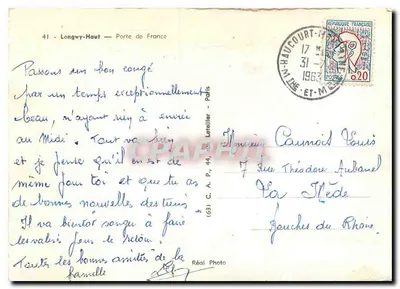 41 - Longwy-Haut — Porte de France
Passons un bon congé
par un temps exceptionnellement
beau, n'ayant rien à envier
au Midi. Tout va bien
et je pense qu'il en est de
même pour toi et que tu as
de bonnes nouvelles des tiens
Il va bientôt songer à faire
les valises pour le retour.
Toutes les bonnes amitiés de la
famille
Réal Photo
(63) C. A. P., 44, Letellier - Paris
3
HAUCOURT-M
17
31
1963
M THE-ET-M
REPUBLIQUE FRANCAISE
0,20
Monsieur Caunois Louis
7 Rue Théodore Aubanel
La Nède
Bouches du Rhône